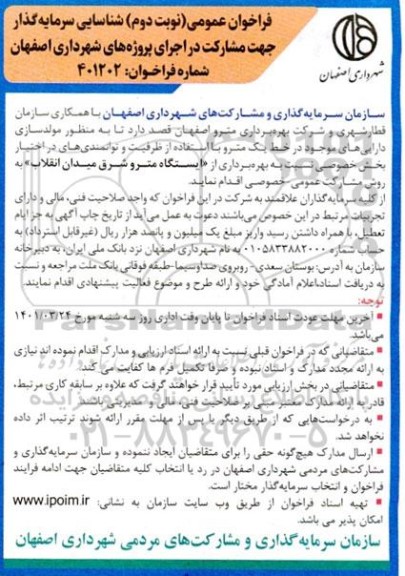 فراخوان عمومی(نوبت دوم) شناسایی سرمایه‌گذار
جهت مشارکت در اجرای پروژه‌های شهرداری اصفهان
شماره فراخوان: ۴۰۱۲۰۲
شهرداری اصفهان
سازمان سرمایه‌گذاری و مشارکت‌های شهرداری اصفهان با همکاری سازمان
قطارشهری و شرکت بهره‌برداری مترو اصفهان قصد دارد تا به منظور مولدسازی
دارایی‌های موجود در خط یک مترو با استفاده از ظرفیت و توانمندی‌های در اختیار
بخش خصوصی نسبت به بهره‌برداری از «ایستگاه مترو شرق میدان انقلاب» به
روش مشارکت عمومی خصوصی اقدام نمایند.
از کلیه سرمایه‌گذاران علاقمند به شرکت در این فراخوان که واجد صلاحیت فنی، مالی و دارای
تجربیات مرتبط در این خصوص می‌باشند دعوت به عمل می‌آید از تاریخ چاپ آگهی به جز ایام
تعطیل، با همراه داشتن رسید واریز مبلغ یک میلیون و پانصد هزار ریال (غیرقابل استرداد) به
حساب شماره ۰۱۰۵۸۳۳۸۸۲۰۰۰ به نام شهرداری اصفهان نزد بانک ملی ایران، به دبیرخانه
سازمان به آدرس: بوستان سعدی- روبروی صداوسیما-طبقه فوقانی بانک ملت مراجعه و نسبت
به دریافت اسناد،اعلام آمادگی خود و ارائه طرح و موضوع فعالیت پیشنهادی اقدام نمایند.
توجه:
■ آخرین مهلت عودت اسناد فراخوان تا پایان وقت اداری روز سه شنبه مورخ ۱۴۰۱/۰۳/۲۴
می‌باشد.
■ متقاضیانی که در فراخوان قبلی نسبت به ارائه اسناد ارزیابی و مدارک اقدام نموده اند نیازی
به ارائه مجدد مدارک و اسناد نبوده و صرفا تکمیل فرم ها کفایت می کند.
■ متقاضیانی در بخش ارزیابی مورد تأیید قرار خواهند گرفت که علاوه بر سابقه کاری مرتبط،
قادر به ارائه مدارک معتبر مبنی بر صلاحیت فنی، مالی و مدیریتی باشند.
■ به درخواست‌هایی که از طریق دیگر یا پس از مهلت مقرر ارائه شوند ترتیب اثر داده
نخواهد شد.
■ ارسال مدارک هیچ‌گونه حقی را برای متقاضیان ایجاد ننموده و سازمان سرمایه‌گذاری و
مشارکت‌های مردمی شهرداری اصفهان در رد یا انتخاب کلیه متقاضیان جهت ادامه فرایند
فراخوان و انتخاب سرمایه‌گذار مختار است.
■ تهیه اسناد فراخوان از طریق وب سایت سازمان به نشانی: www.ipoim.ir
امکان پذیر می باشد.
سازمان سرمایه‌گذاری و مشارکت‌های مردمی شهرداری اصفهان
ParsNamadData
۰۲۱-۸۸۳۴۹۶۷۰-۵